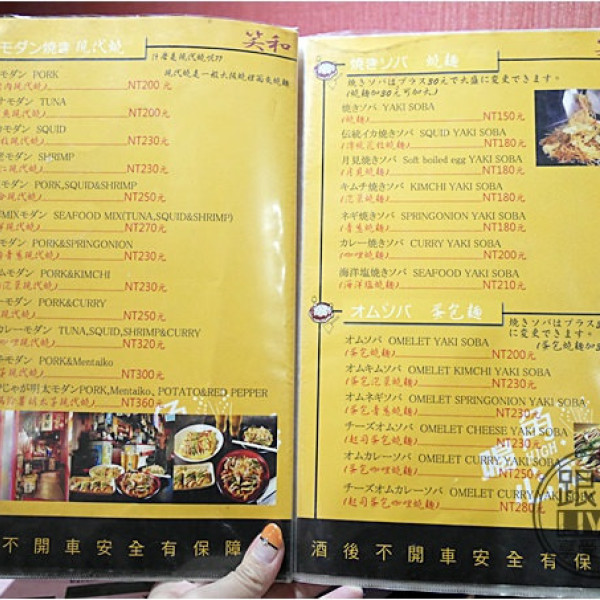 笑和
モダン燒 現代燒
什麼是現代燒呢??
現代燒是一般大阪燒註寫免燒麵
モダン PORK
肉現代燒)NT200元
ナモダン TUNA
魚現代燒)NT200元
モダン SQUID
現代燒)NT230元
モダン SHRIMP
仁現代燒)NT230元
モダン PORK,SQUID&SHRIMP
現代燒)NT250元
MIXモダン SEAFOOD MIX(TUNA,SQUID&SHRIMP)
現代燒)NT270元
モダン PORK&SPRINGONION
青蔥現代燒)NT230元
ムモダン PORK&KIMCHI
泡菜現代燒)NT230元
ーモダン PORK&CURRY
現代燒)NT250元
カレーモダン TUNA,SQUID,SHRIMP&CURRY
咖哩現代燒)NT320元
モダン PORK&Mentaiko
現代燒)NT300元
じゃが明太モダンPORK,Mentaiko、POTATO&RED PEPPER
明太子現代燒)NT360元
不開車安全有保障
笑
焼きソバ 燒麵
焼きソバはプラス30元で大盛に変更できます。
(燒麵加30元可加大)
焼きソバ YAKI SOBA
(燒麵)NT150元
伝統イカ焼きソバ SQUID YAKI SOBA
(傳統花枝燒麵)NT180元
月見焼きソバ Soft boiled egg YAKI SOBA
(月見燒麵)NT180元
キムチ焼きソバ KIMCHI YAKI SOBA
(泡菜燒麵)NT180元
ネギ焼きソバ SPRINGONION YAKI SOBA
(青蔥燒麵)NT180元
カレー焼きソバ CURRY YAKI SOBA
(咖哩燒麵)NT200元
海洋塩焼きソバ SEAFOOD YAKI SOBA
(海洋塩燒麵)NT210元
オムソバ 蛋包麵
焼きソバはプラス3
に変更できます。
(蛋包燒麵加3
オムソバ OMELET YAKI SOBA
(蛋包燒麵)NT200元
オムキムソバ OMELET KIMCHI YAKI SOBA
(蛋包泡菜燒麵)NT230元
オムネギソバ OMELET SPRINGONION YAKI SOBA
(蛋包青蔥燒麵)NT230
チーズオムソバ OMELET CHEESE YAKI SOBA
(起司蛋包燒麵)NT230元
オムカレーソバ OMELET CURRY YAKI SOBA
(蛋包咖哩燒麵)NT250元
チーズオムカレーソバ OMELET CURRY YAKI SOBA
(起司蛋包咖哩燒麵)NT280元
酒後不開車安全有保
跟
LIV